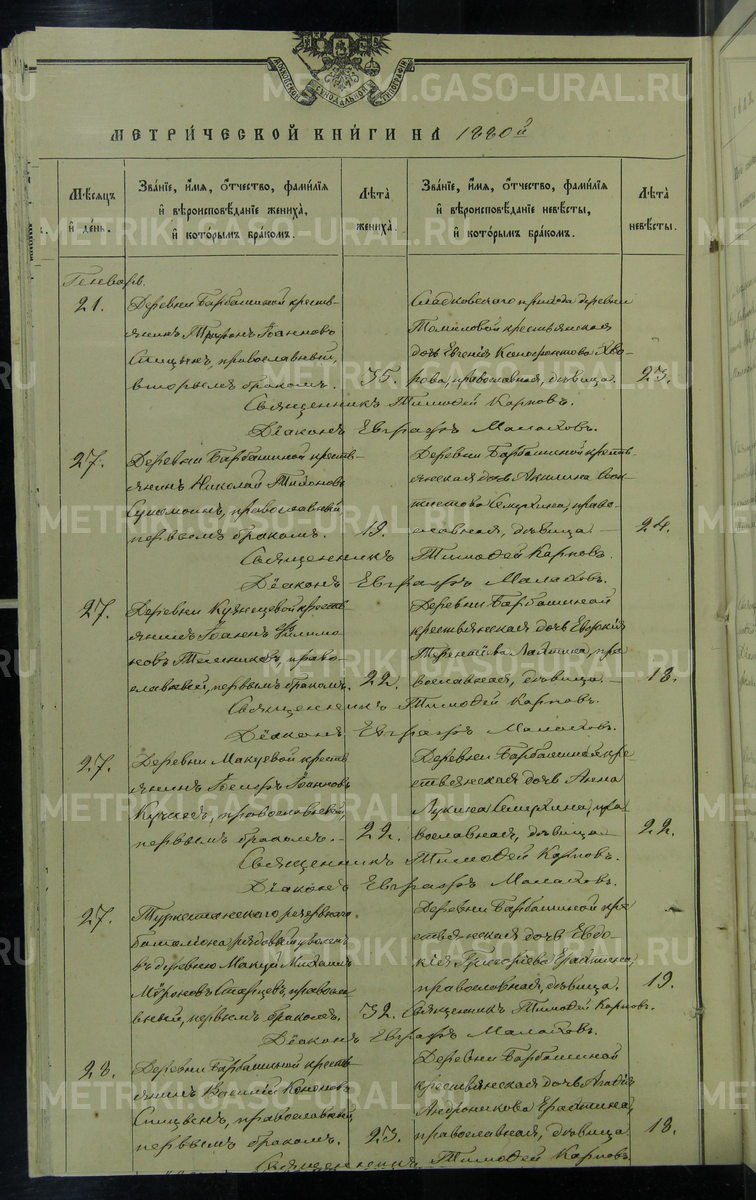 МОСКОВСКОЙ СѴНОДАЛЬНОЙ ТИПОГРАФІИ
МЕТРИ́ЧЕСКОЙ КНИ́ГИ НА 1880й
Мѣсяцъ и день.
Зва́нїе, и́мя, о́тчество, фами́лїя и вѣроисповѣ́данїе жениха̀, и кото́рымъ бра́комъ.
Лѣта̀ жениха̀.
Зва́нїе, и́мя, о́тчество, фами́лїя и вѣроисповѣ́данїе невѣ́сты, и кото́рымъ бра́комъ.
Лѣта̀ невѣ́сты.
Генварь.
21. Деревни Барбашиной кресть-
янинъ Трифонъ Іоанновъ
Спицынъ, православный,
вторымъ бракомъ. 35.
Сладковскаго прихода деревни
Томиловой крестьянская
дочь Евгенія
православная, дѣвица. 23.
Священникъ Тимофей Карповъ.
Діаконъ Евграфъ Малаховъ.
27. Деревни Барбашиной кресть-
янинъ Николай Тихоновъ
православный,
первымъ бракомъ. 19.
Деревни Барбашиной кресть-
янская дочь Акилина
право-
славная, дѣвица. 24.
Священникъ Тимофей Карповъ.
Діаконъ Евграфъ Малаховъ.
27. Деревни Кузнецовой кресть-
янинъ Іоаннъ Филимо-
новъ право-
славный, первымъ бракомъ. 22.
Деревни Барбашиной
крестьянская дочь
пра-
вославная, дѣвица. 18.
Священникъ Тимофей Карповъ.
Діаконъ Евграфъ Малаховъ.
27. Деревни Макуевой кресть-
янинъ Іоанновъ
православный,
первымъ бракомъ. 22.
Деревни Барбашиной кре-
стьянская дочь Анна
Лукина пра-
вославная, дѣвица. 22.
Священникъ Тимофей Карповъ.
Діаконъ Евграфъ Малаховъ.
27. Туркестанскаго резервнаго
баталіона рядовой
въ деревню Михаилъ
Мѵроновъ Старцевъ, правосла-
вный, первымъ бракомъ. 32.
Деревни Барбашиной кре-
стьянская дочь Евдо-
кія Григорьева
православная, дѣвица. 19.
Священникъ Тимофей Карповъ.
Діаконъ Евграфъ Малаховъ.
28. Деревни Барбашиной кресть-
янинъ Василій Кононовъ
Спицынъ, православный,
первымъ бракомъ. 23.
Деревни Барбашиной
крестьянская дочь Агафія
Андроникова
православная, дѣвица 18.
Священникъ Тимофей Карповъ
METRIKI.GASO-URAL.RU